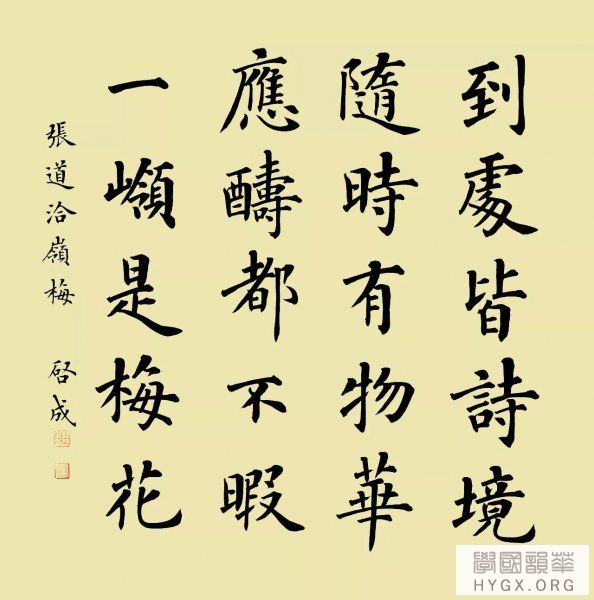 到處皆詩境
隨時有物華
應醻都不暇
一嶺是梅花
張道洽嶺梅 啓成
學國韻華
HYGX.ORG